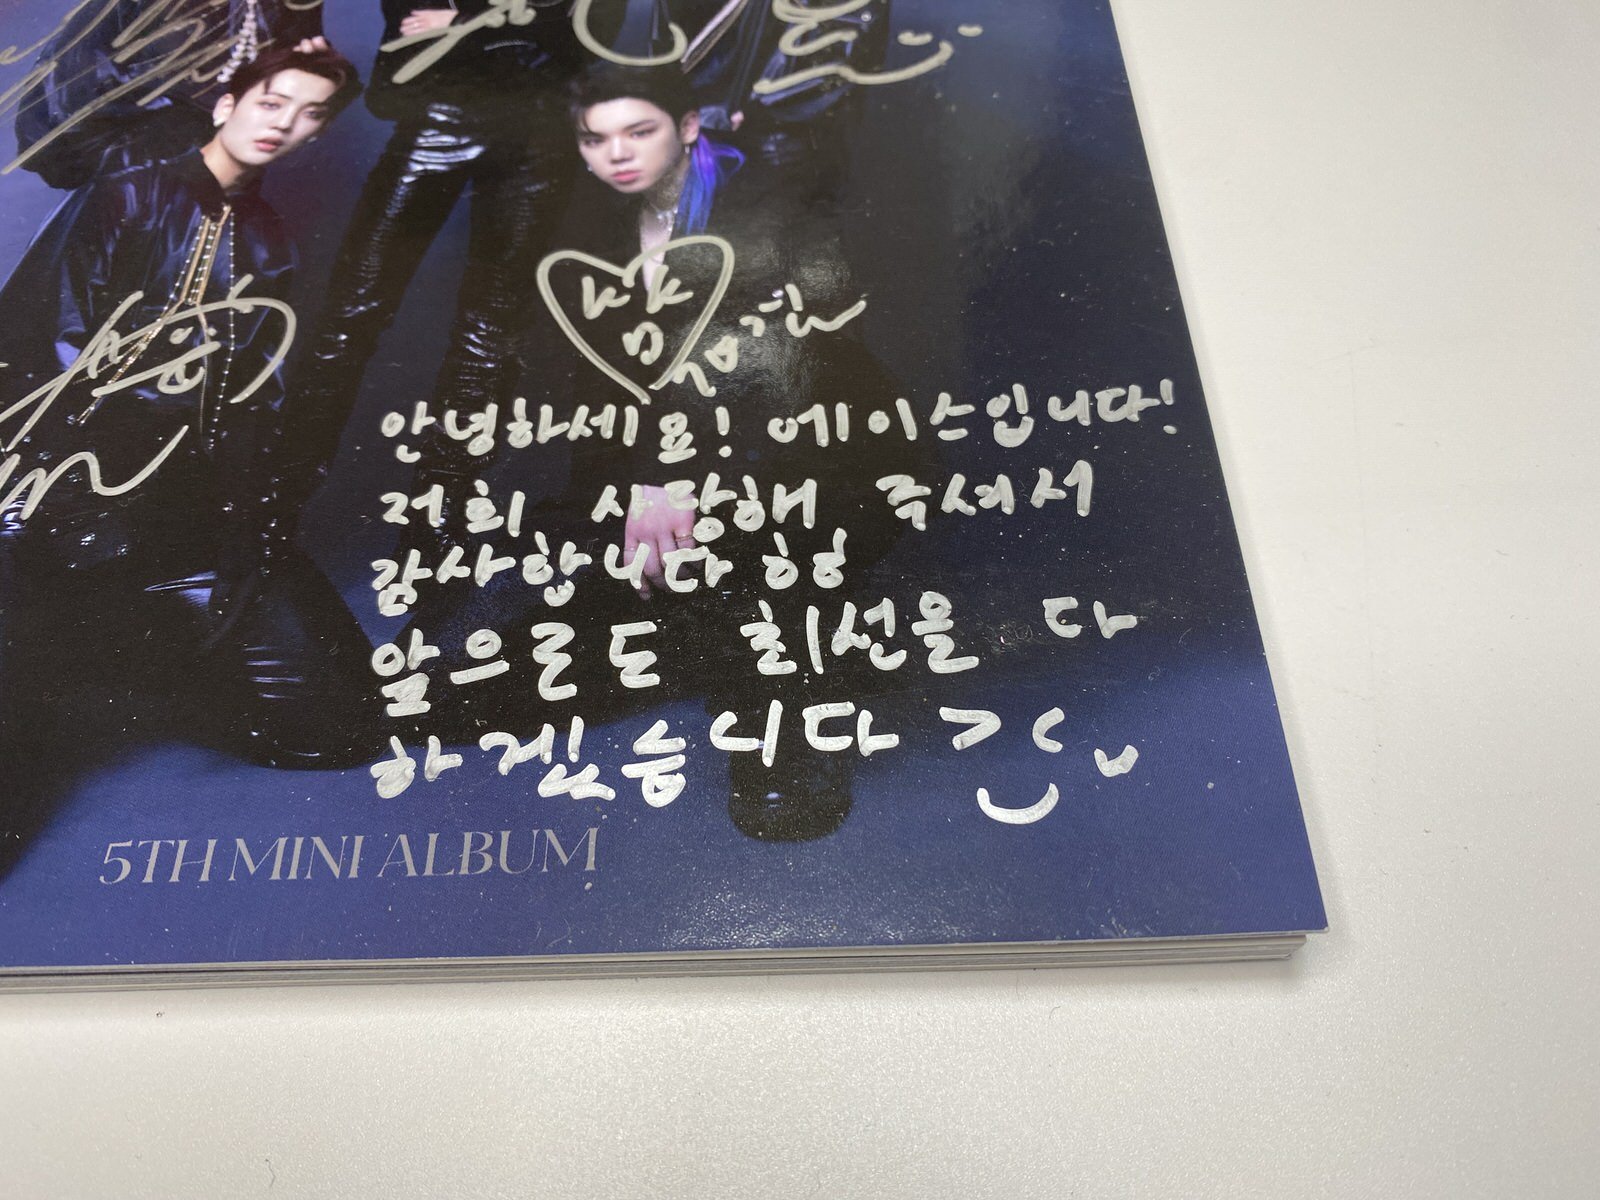 안녕하세요! 에이스입니다!
저희 사랑해 주셔서
감사합니다 형
앞으로도 최선을 다
하겠습니다
5TH MINI ALBUM